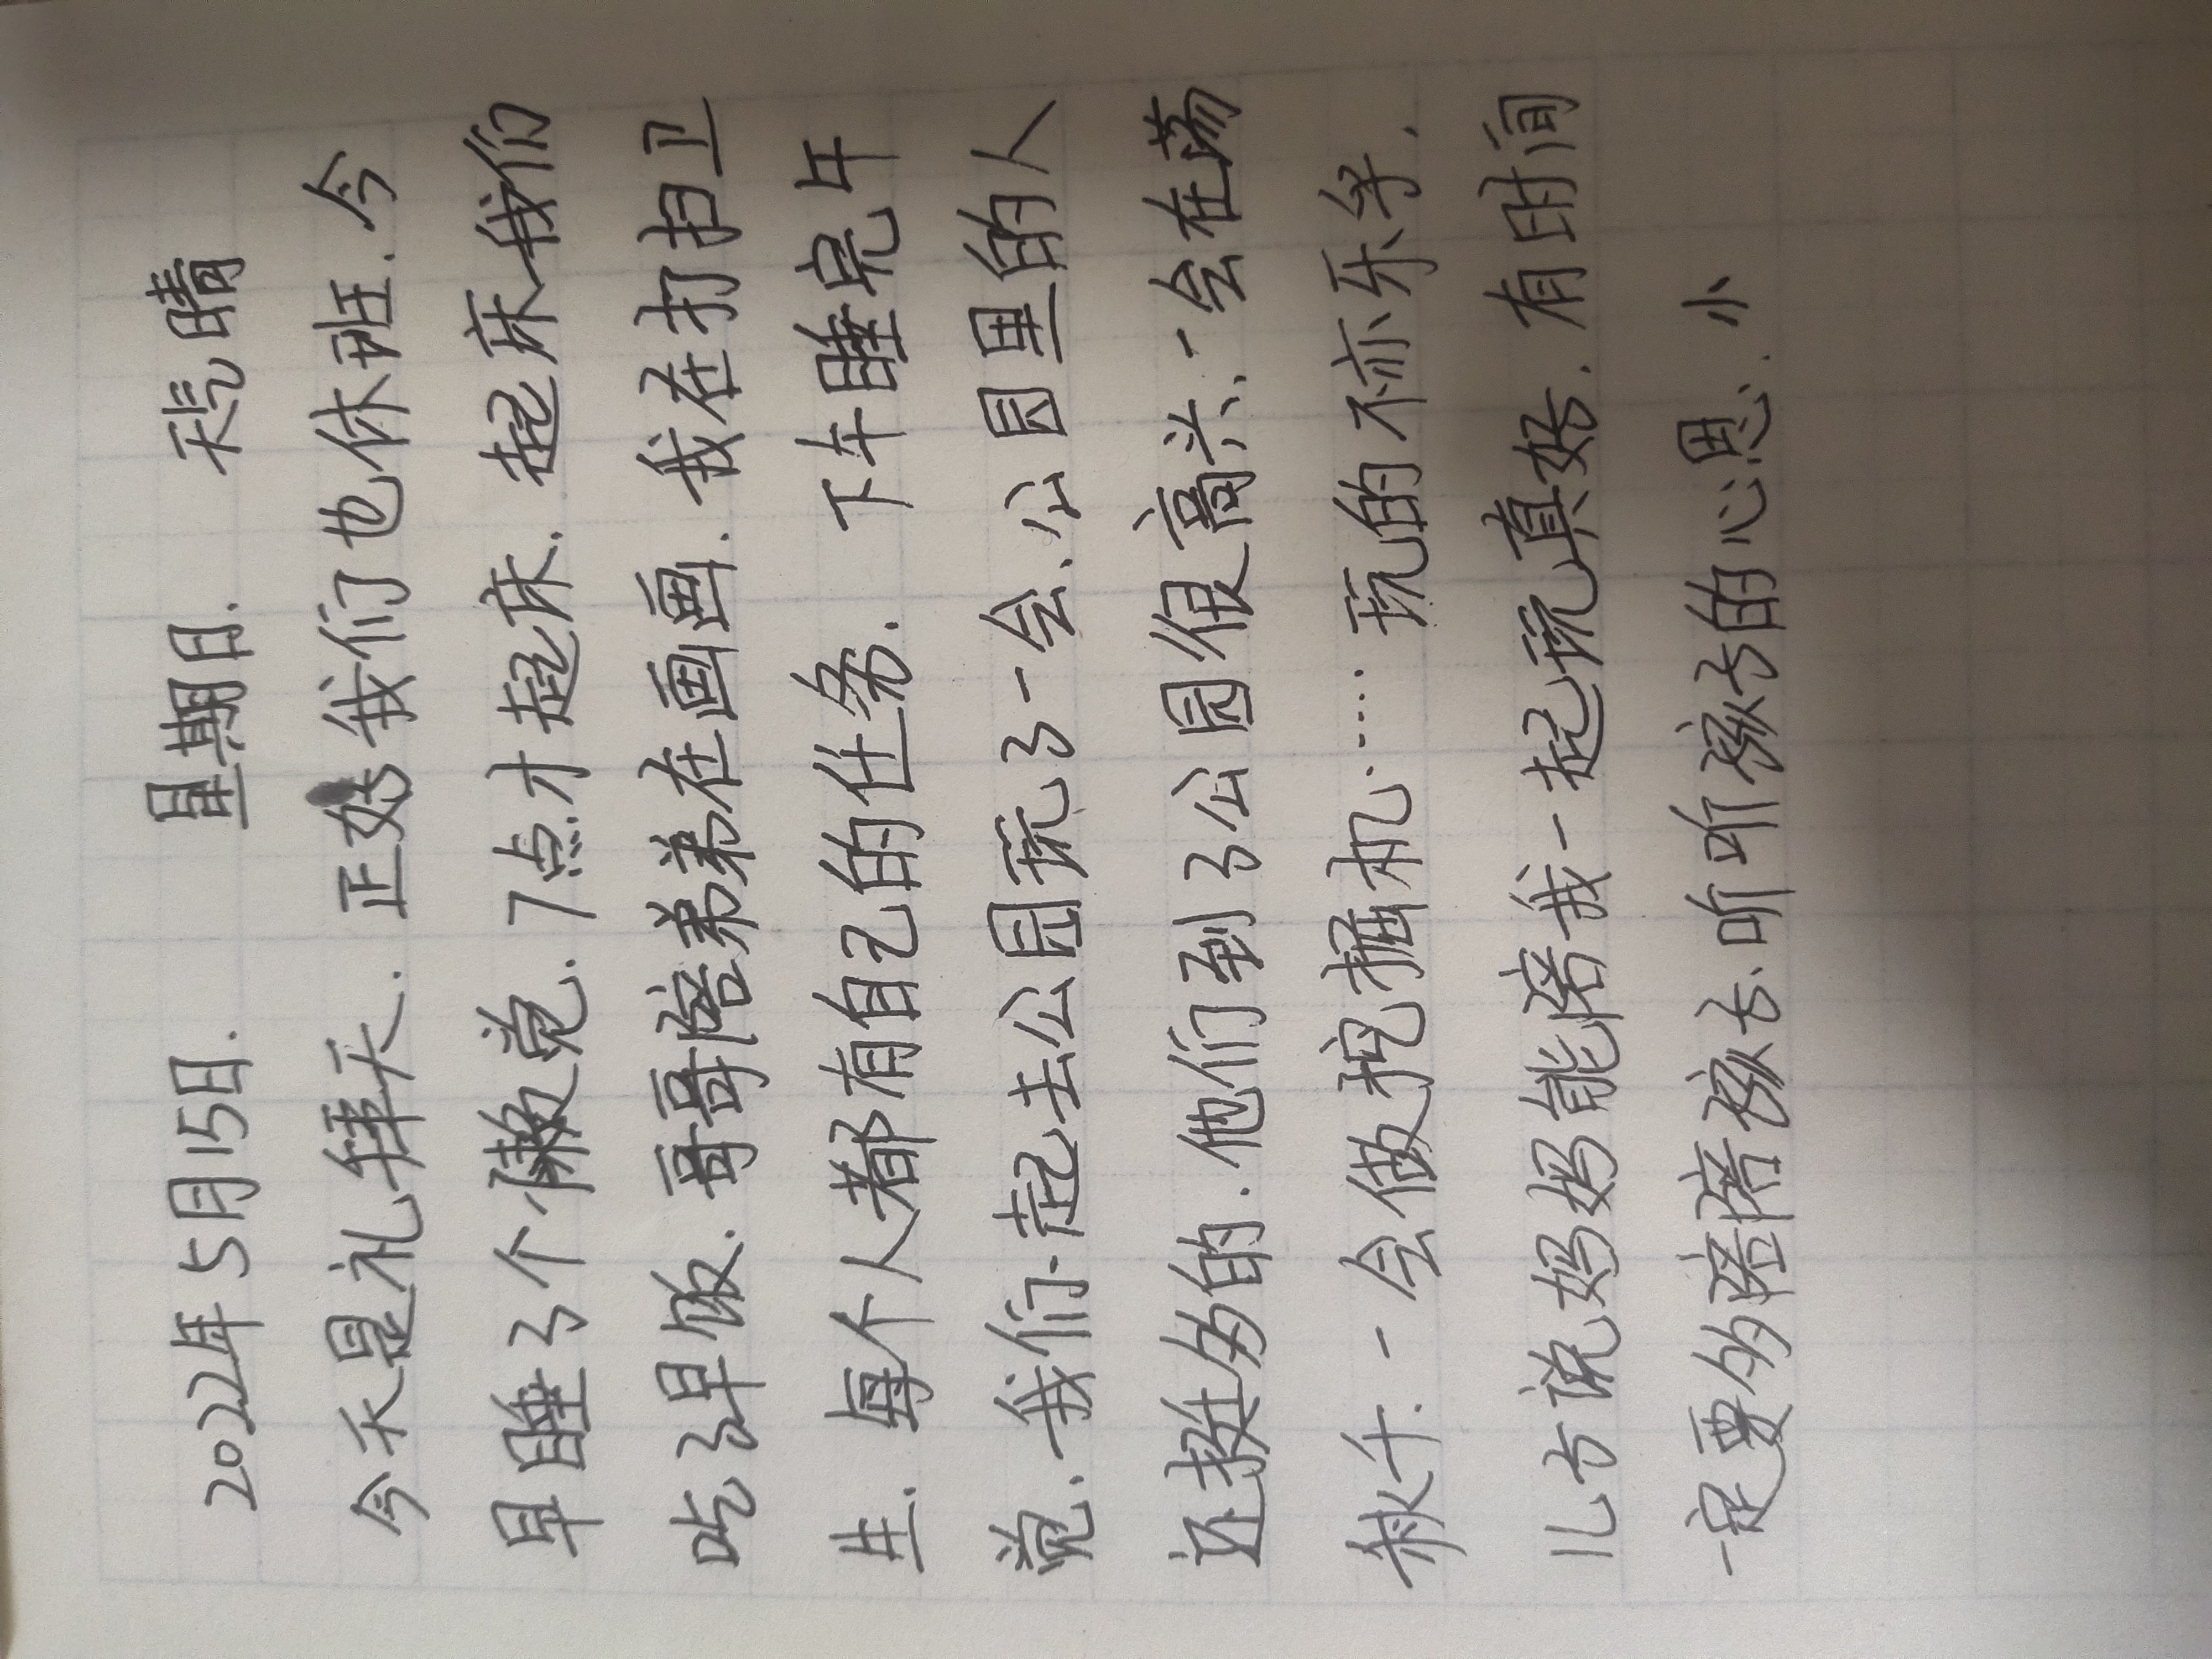 2022年5月15日. 星期日. 天气晴
今天是礼拜天. 正好我们也休班. 今
早睡了个懒觉. 7点才起床. 起床我们
吃了早饭. 哥哥陪弟弟在画画. 我在打扫卫
生. 每个人都有自己的任务. 下午睡完午
觉. 我们一起去公园玩了一会、公园里的人
还挺多的. 他们到了公园很高兴、一会在荡
秋千. 一会做挖掘机…… 玩的不亦乐乎.
儿子说妈妈能陪我一起玩真好. 有时间
一定要多陪陪孩子、听听孩子的心思. 小